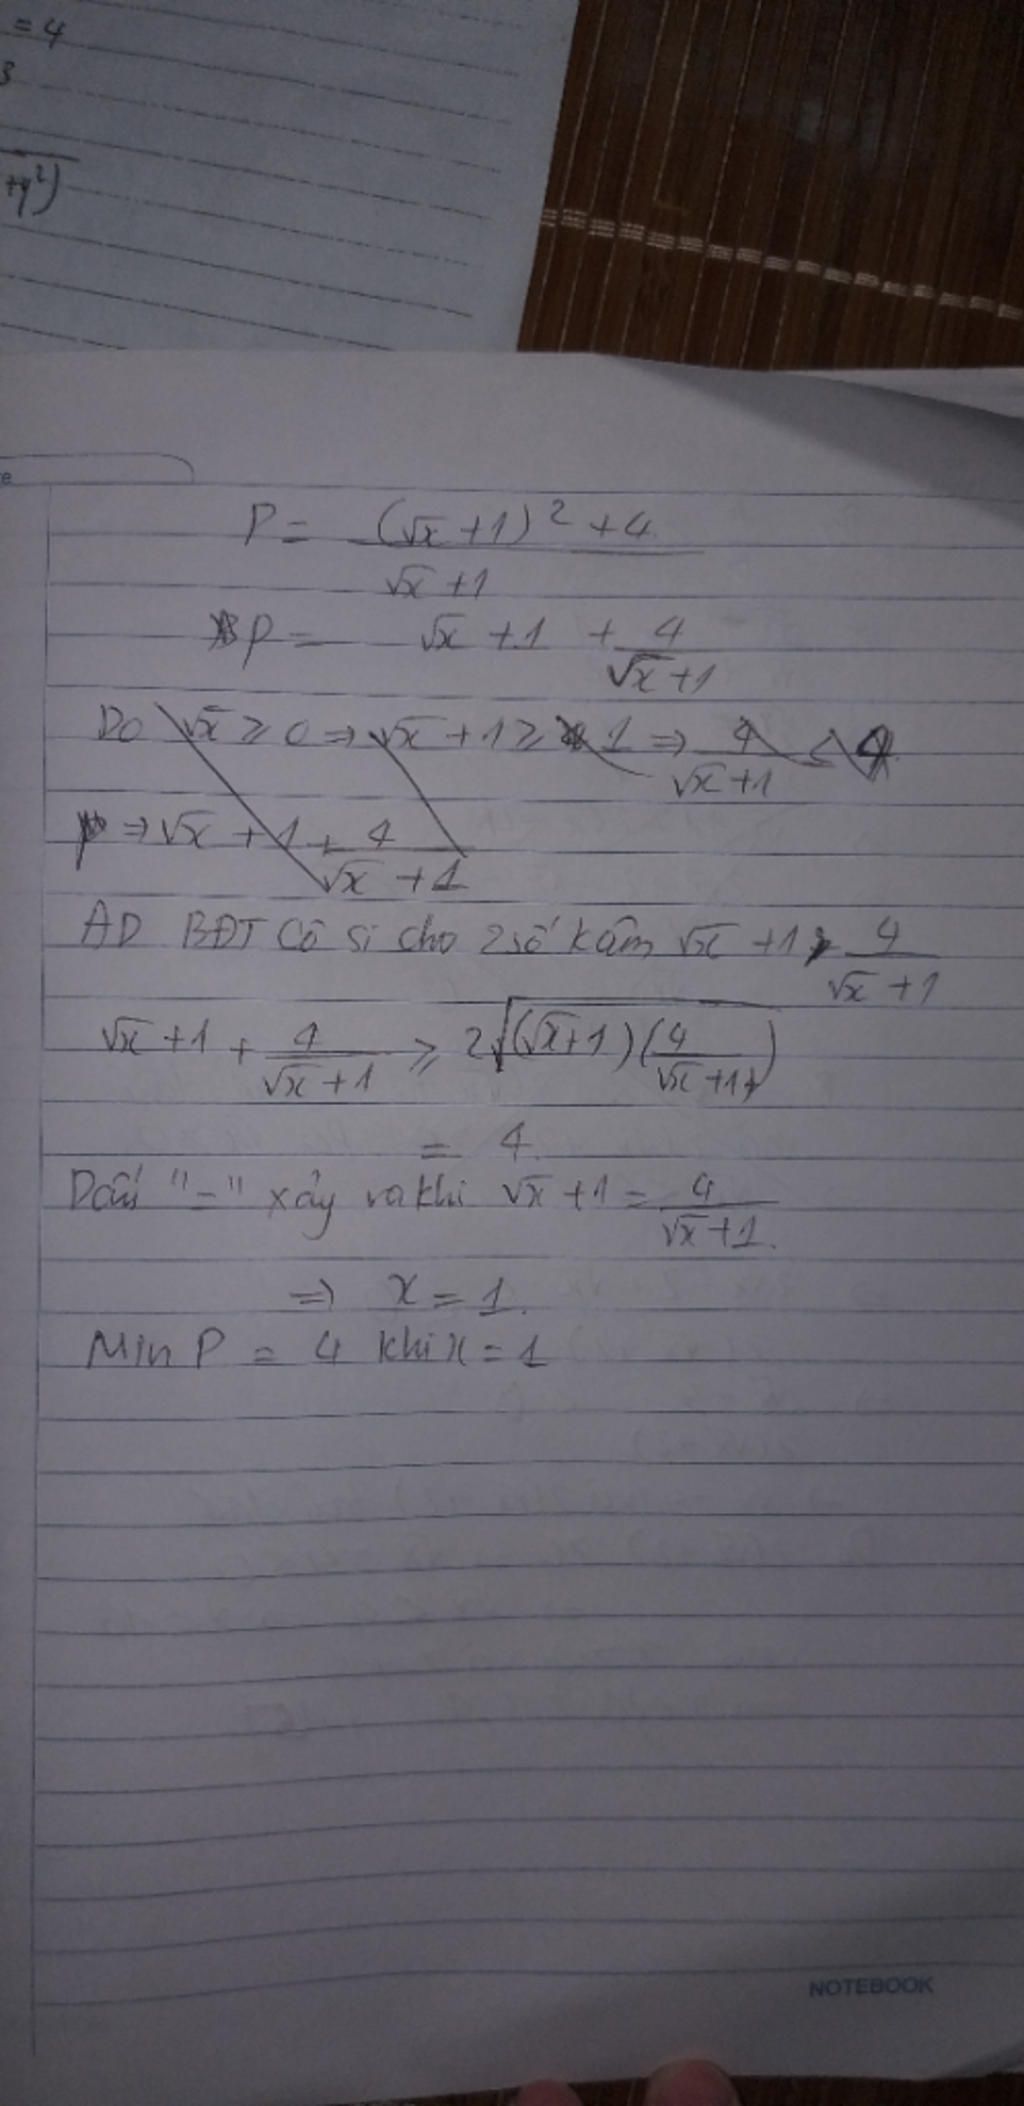 = 4
3
+y²)
e
P = (√x + 1)² + 4 / √x + 1
P = √x + 1 + 4 / √x + 1
Do √x ≥ 0 ⇒ √x + 1 ≥ 1 ⇒ 4 / √x + 1 ≤ 4
⇒ √x + 1 + 4 / √x + 1
AD BĐT Cô si cho 2 số kâm √x + 1; 4 / √x + 1
√x + 1 + 4 / √x + 1 ≥ 2√(√x + 1)(4 / √x + 1)
= 4
Dấu "=" xảy ra khi √x + 1 = 4 / √x + 1.
⇒ x = 1.
Min P = 4 khi x = 1
NOTEBOOK